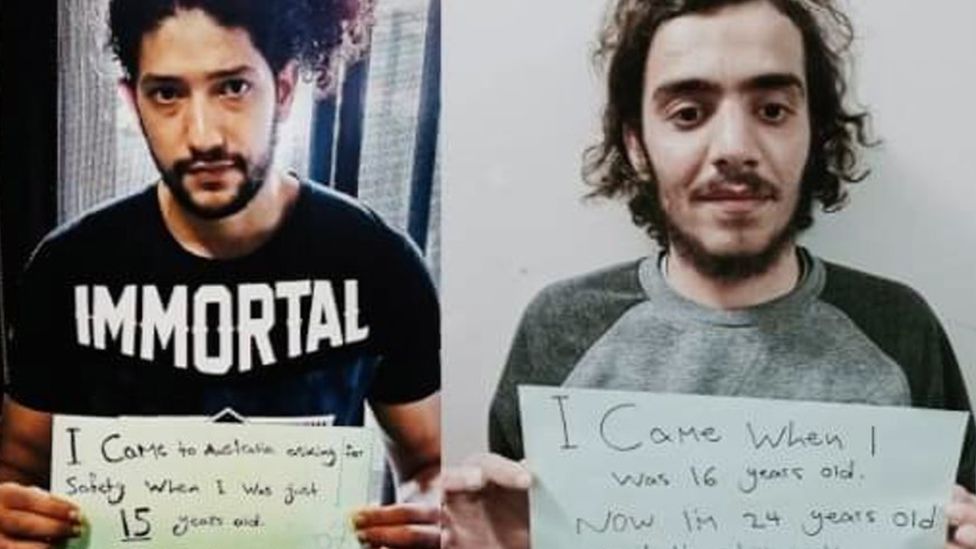 IMMORTAL
I Came to Australia asking for
Safety when I was just
15 years old.
I Came When I
was 16 years old.
Now I'm 24 years old